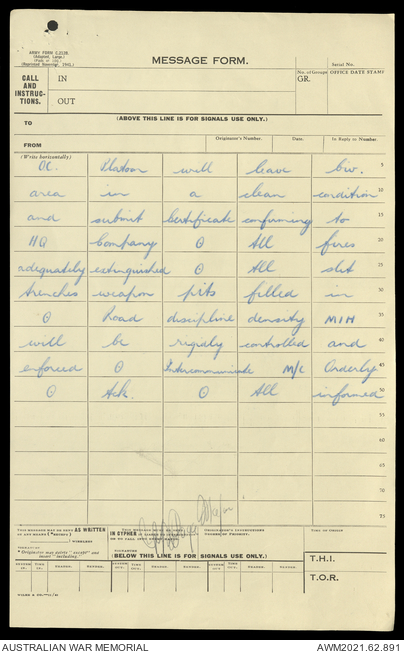 ARMY FORM C.2128.
(Adapted, Large.)
(Pads of 100.)
MESSAGE FORM.
Serial No.
CALL
AND
INSTRUC-
TIONS.
IN
OUT
No. of Groups
GR.
OFFICE DATE STAMP
(ABOVE THIS LINE IS FOR SIGNALS USE ONLY.)
TO
FROM
Originator's Number.
Date.
In Reply to Number.
(Write horizontally)
OC. Platoon will leave biv. 5
area in a clean condition 10
and submit Certificate confirming to 15
HQ Company O All fires 20
adequately extinguished O All slit 25
trenches weapon pits filled in 30
O Road discipline density MIH 35
will be rigidly controlled and 40
enforced O Intercommunicate M/C Orderly 45
O Ack. O All informed 50
55
60
65
70
75
THIS MESSAGE MAY BE SENT AS WRITTEN
BY ANY MEANS
WIRELESS
IN CYPHER
SIGNATURE
ORIGINATOR'S INSTRUCTIONS
DEGREE OF PRIORITY.
TIME OF ORIGIN
(BELOW THIS LINE IS FOR SIGNALS USE ONLY.)
T.H.I.
T.O.R.
SYSTEM IN. TIME IN. READER. SENDER. SYSTEM OUT. TIME OUT. READER. SENDER. SYSTEM OUT. TIME OUT. READER. SENDER.
AUSTRALIAN WAR MEMORIAL
AWM2021.62.891